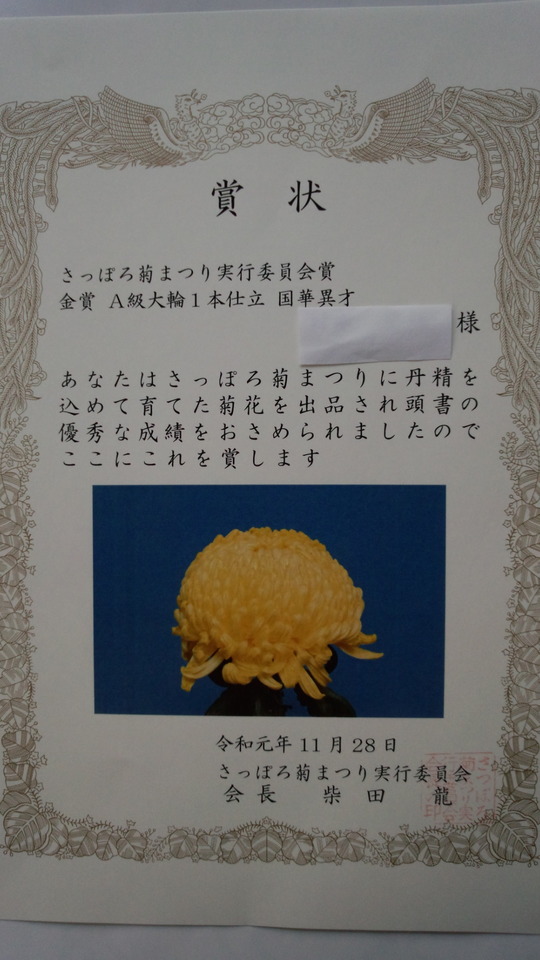 賞 状
さっぽろ菊まつり実行委員会賞
金賞 A級大輪1本仕立 国華異才
様
あなたはさっぽろ菊まつりに丹精を
込めて育てた菊花を出品され頭書の
優秀な成績をおさめられましたので
ここにこれを賞します
令和元年11月28日
さっぽろ菊まつり実行委員会
会長 柴田 龍